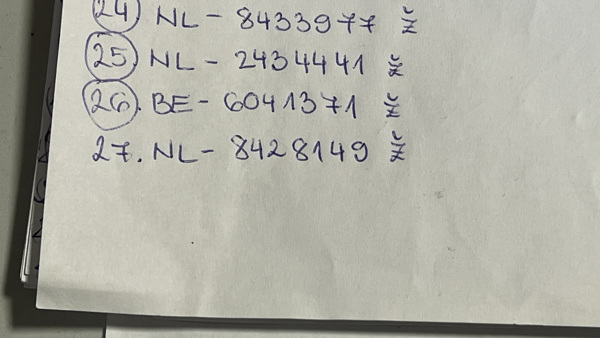 24 NL - 8433977 Ž
25. NL - 2434441 Ž
26. BE - 6041371 Ž
27. NL - 8428149 Ž